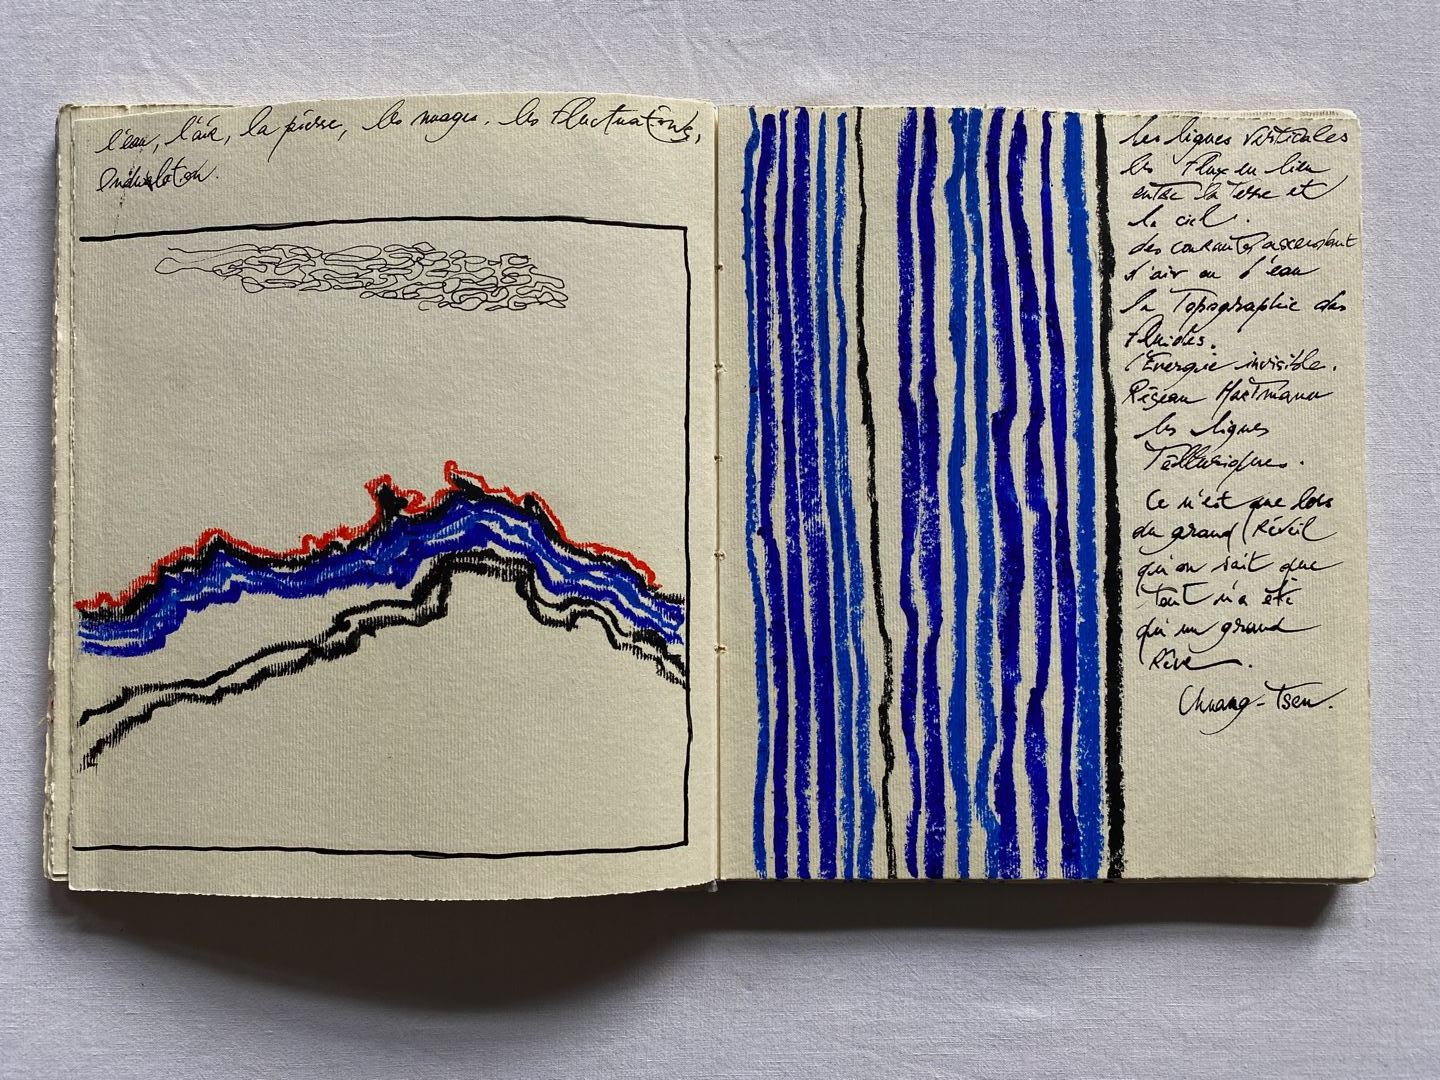 l'eau, l'air, la pierre, les nuages. les Fluctuations,
Ondulation.
les lignes verticales
les Flux en lien
entre la Terre et
le ciel.
des courants ascendant
d'air ou d'eau
la Topographie des
Fluides.
l'Energie invisible.
Réseau Hartmann
les lignes
Telluriques.
Ce n'est que lors
du grand Réveil
qu'on sait que
tout n'a été
qu'un grand
Rêve.
Chuang-Tseu.